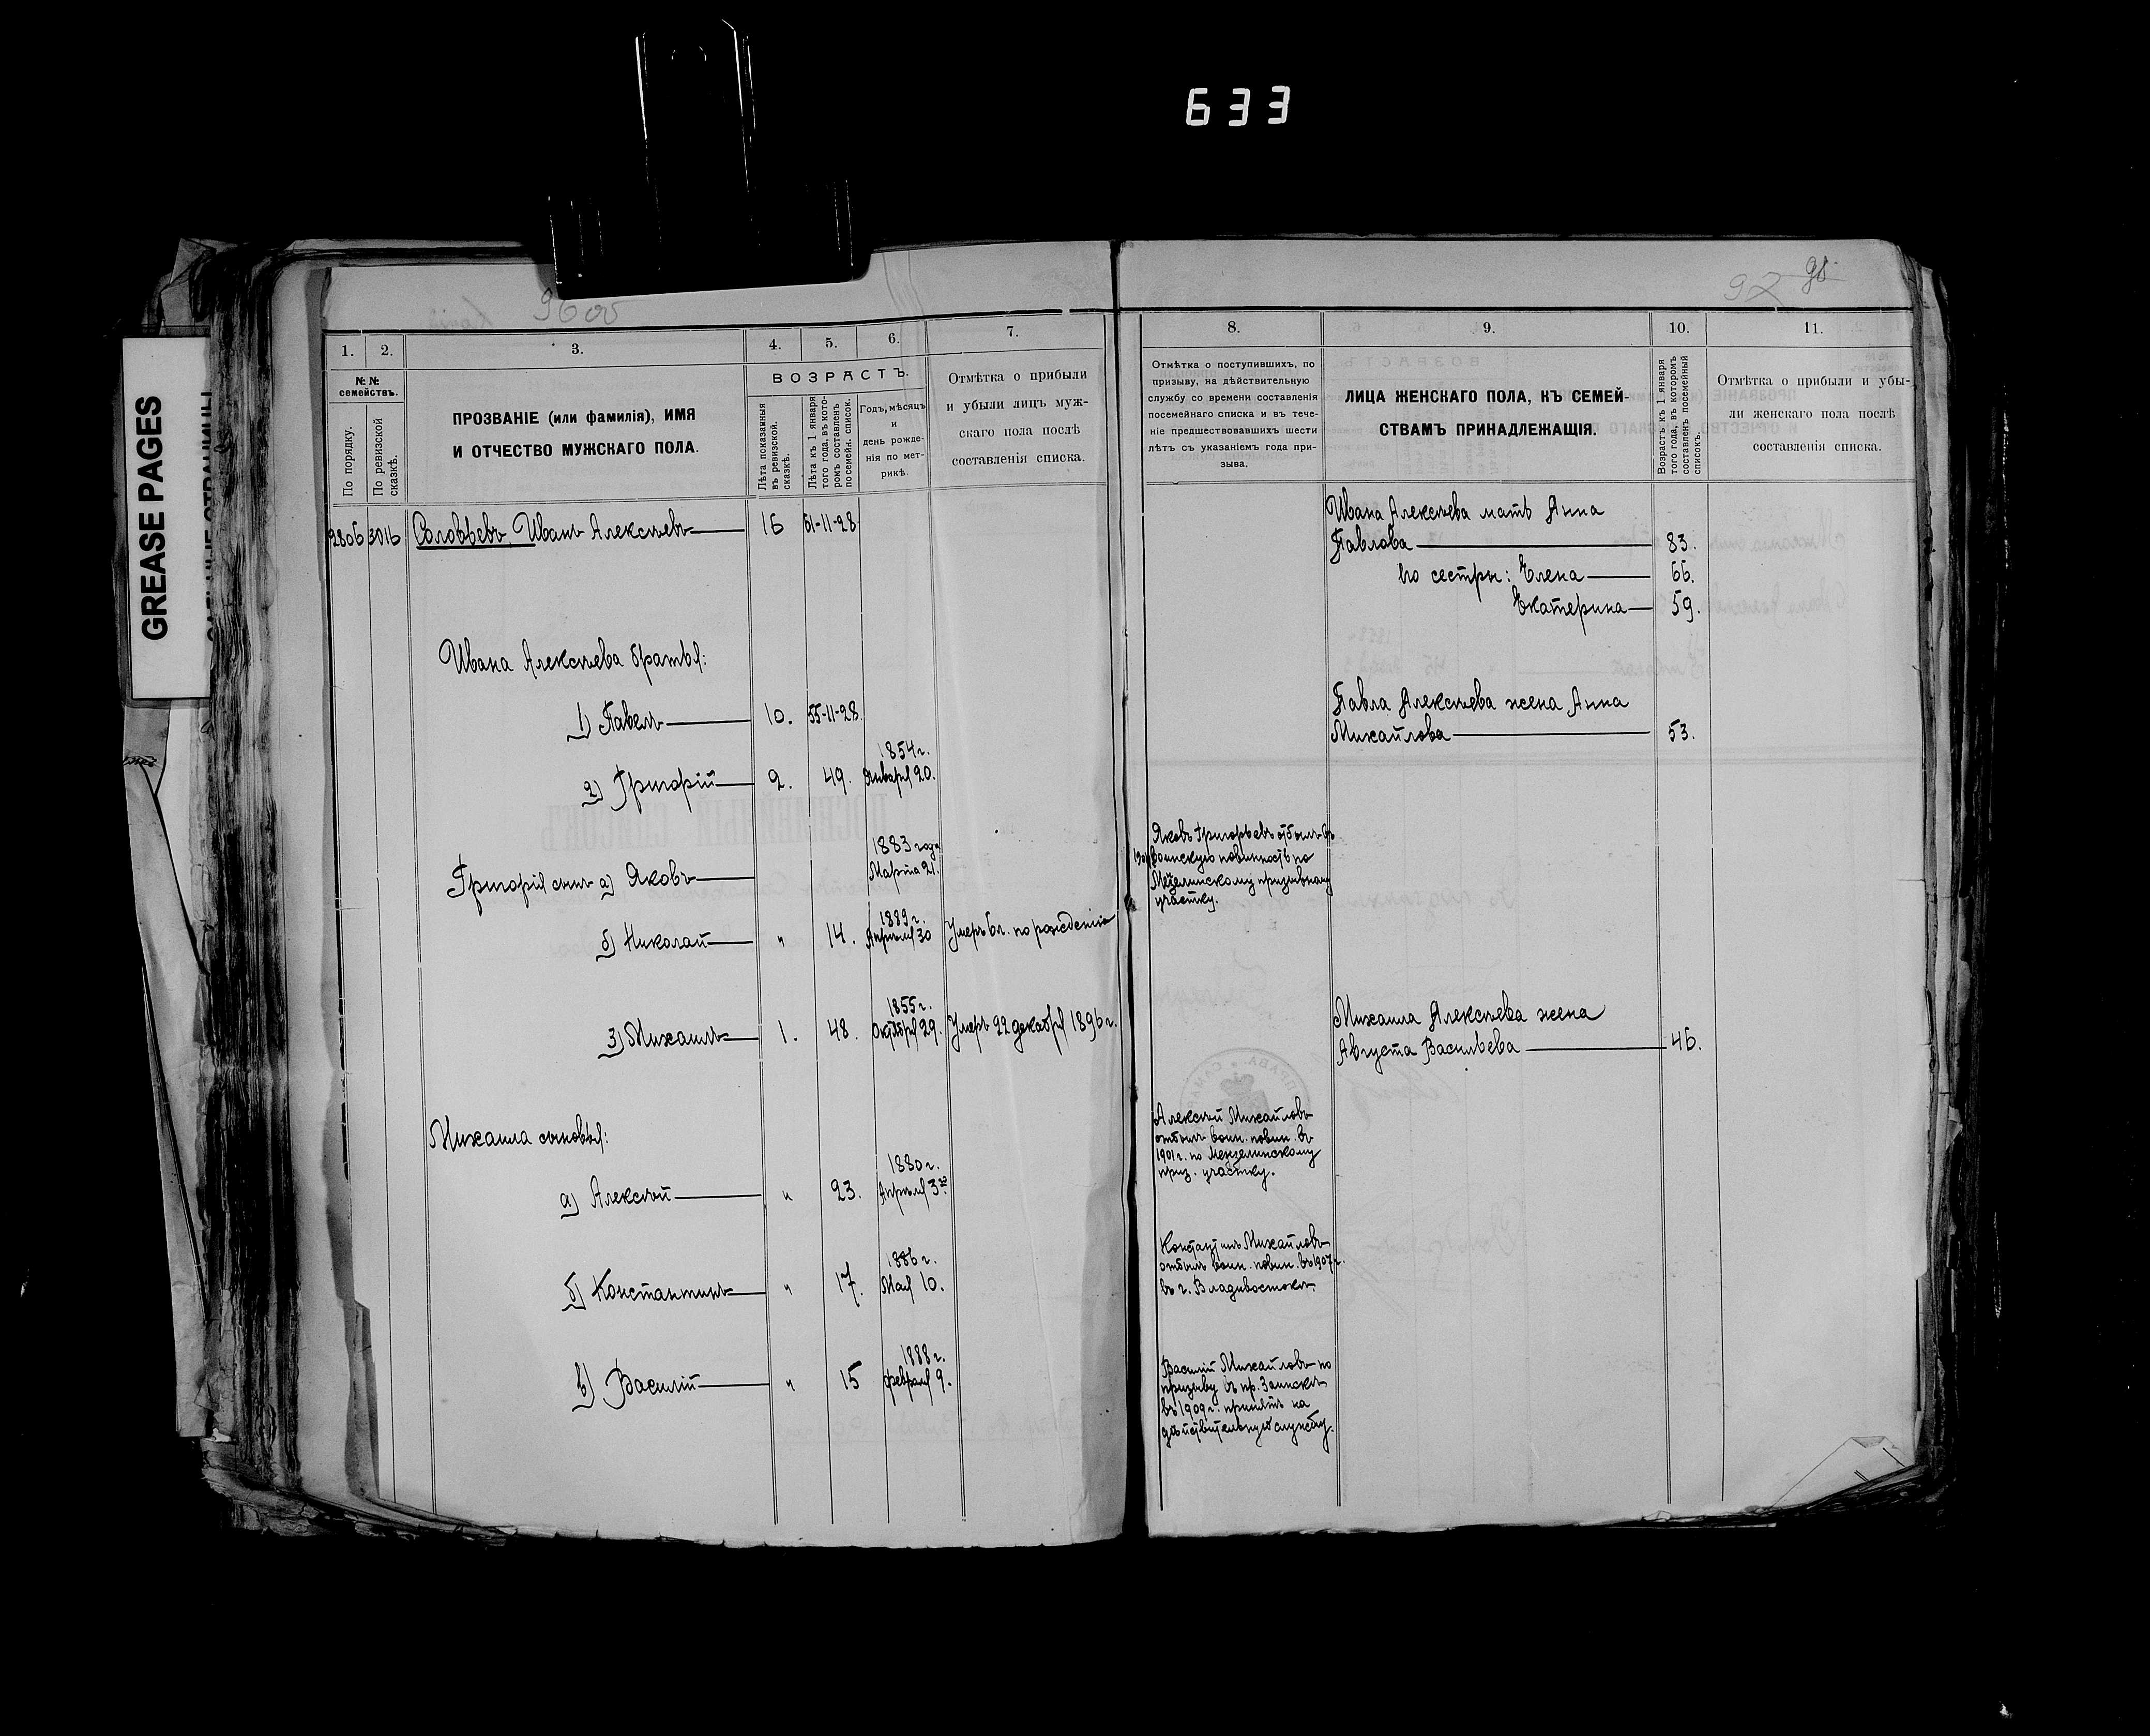 633
GREASE PAGES
96 об
92 98
1. 2. 3. 4. 5. 6. 7.
№ №
семействъ.
По порядку.
По ревизской
сказкѣ.
ПРОЗВАНІЕ (или фамилія), ИМЯ
И ОТЧЕСТВО МУЖСКАГО ПОЛА.
ВОЗРАСТЪ.
Лѣта показанныя
въ ревизской.
сказкѣ.
Лѣта къ 1 января
того года, въ кото-
ромъ составленъ
посемейн. список.
Годъ, мѣсяцъ
и
день рожде-
нія по мет-
рикѣ.
Отмѣтка о прибыли
и убыли лицъ муж-
скаго пола послѣ
составленія списка.
2806 3016 Соловьевъ, Иванъ Алексѣевъ 16 61-11-28
Ивана Алексѣева братья:
1) Павелъ 10. 55-11-28
1854 г.
2) Григорій 2. 49. Января 20.
1883 года
Григорія сынъ а) Яковъ Марта 21.
1889 г.
б) Николай " 14. Апрѣля 30 Умеръ 6 г. по рожденію
1855 г.
3) Михаилъ 1. 48. Октября 29. Умеръ 22 декабря 1896 г.
Михаила сыновья:
1880 г.
а) Алексѣй " 23. Апрѣля 3го
1886 г.
б) Константинъ " 17. Мая 10.
1888 г.
в) Василій " 15 февраля 9.
8. 9. 10. 11.
Отмѣтка о поступившихъ, по
призыву, на дѣйствительную
службу со времени составленія
посемейнаго списка и въ тече-
ніе предшествовавшихъ шести
лѣтъ съ указаніемъ года при-
зыва.
ЛИЦА ЖЕНСКАГО ПОЛА, КЪ СЕМЕЙ-
СТВАМЪ ПРИНАДЛЕЖАЩІЯ.
Возрастъ къ 1 января
того года, въ которомъ
составленъ посемейный
списокъ.
Отмѣтка о прибыли и убы-
ли женскаго пола послѣ
составленія списка.
Ивана Алексѣева мать Анна
Павлова 83.
его сестры: Елена 66.
Екатерина 59.
Павла Алексѣева жена Анна
Михайлова 53.
Яковъ Григорьевъ отбылъ въ
воинскую повинность по
Мензелинскому призывному
участку.
Михаила Алексѣева жена
Августа Васильева 46.
Алексѣй Михайловъ
отбылъ воин. повин. въ
1901 г. по Мензелинскому
приз. участку.
Константинъ Михайловъ
отбылъ воин. повин. въ 1907 г.
въ г. Владивостокѣ.
Василій Михайловъ по
призыву въ пр. Заинскѣ
въ 1909 г. принятъ на
дѣйствительную службу.